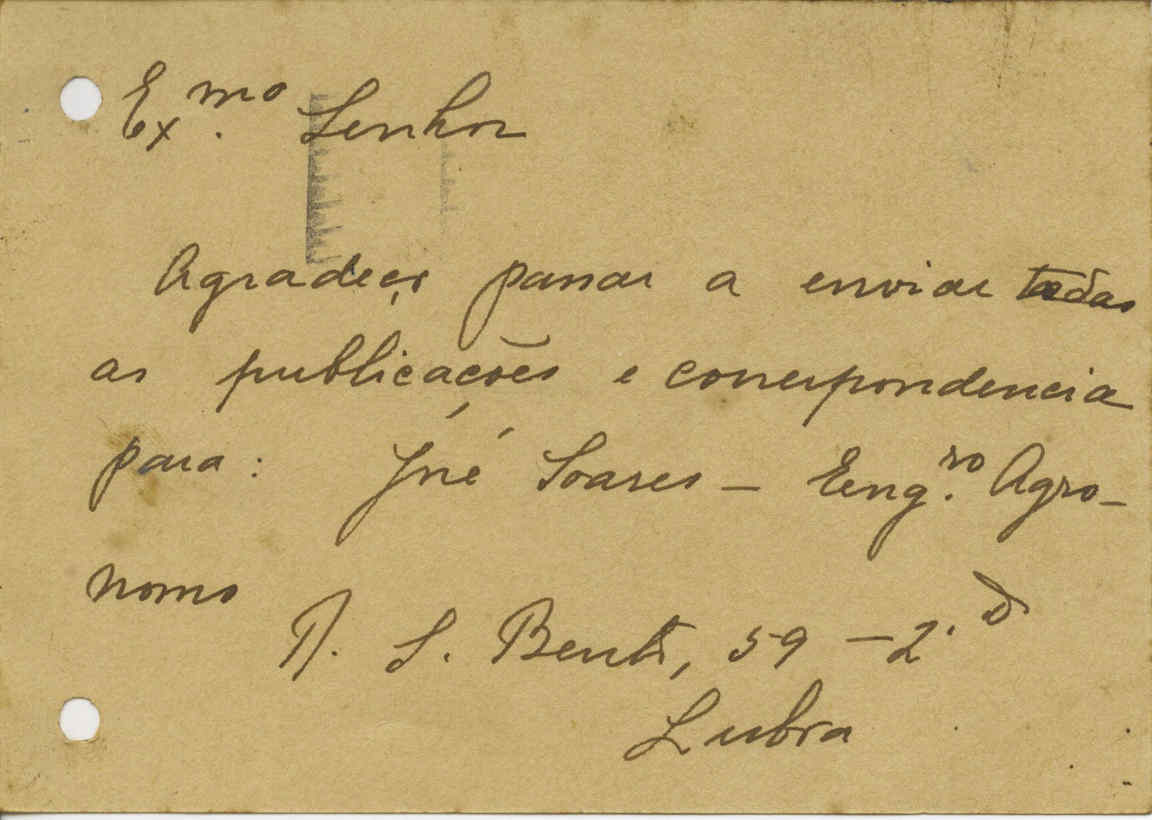 Ex.mo Senhor
Agradeço passar a enviar todas
as publicações e correspondencia
para: José Soares - Eng.ro Agro-
nomo
R. S. Bento, 59 - 2.º
Lisboa